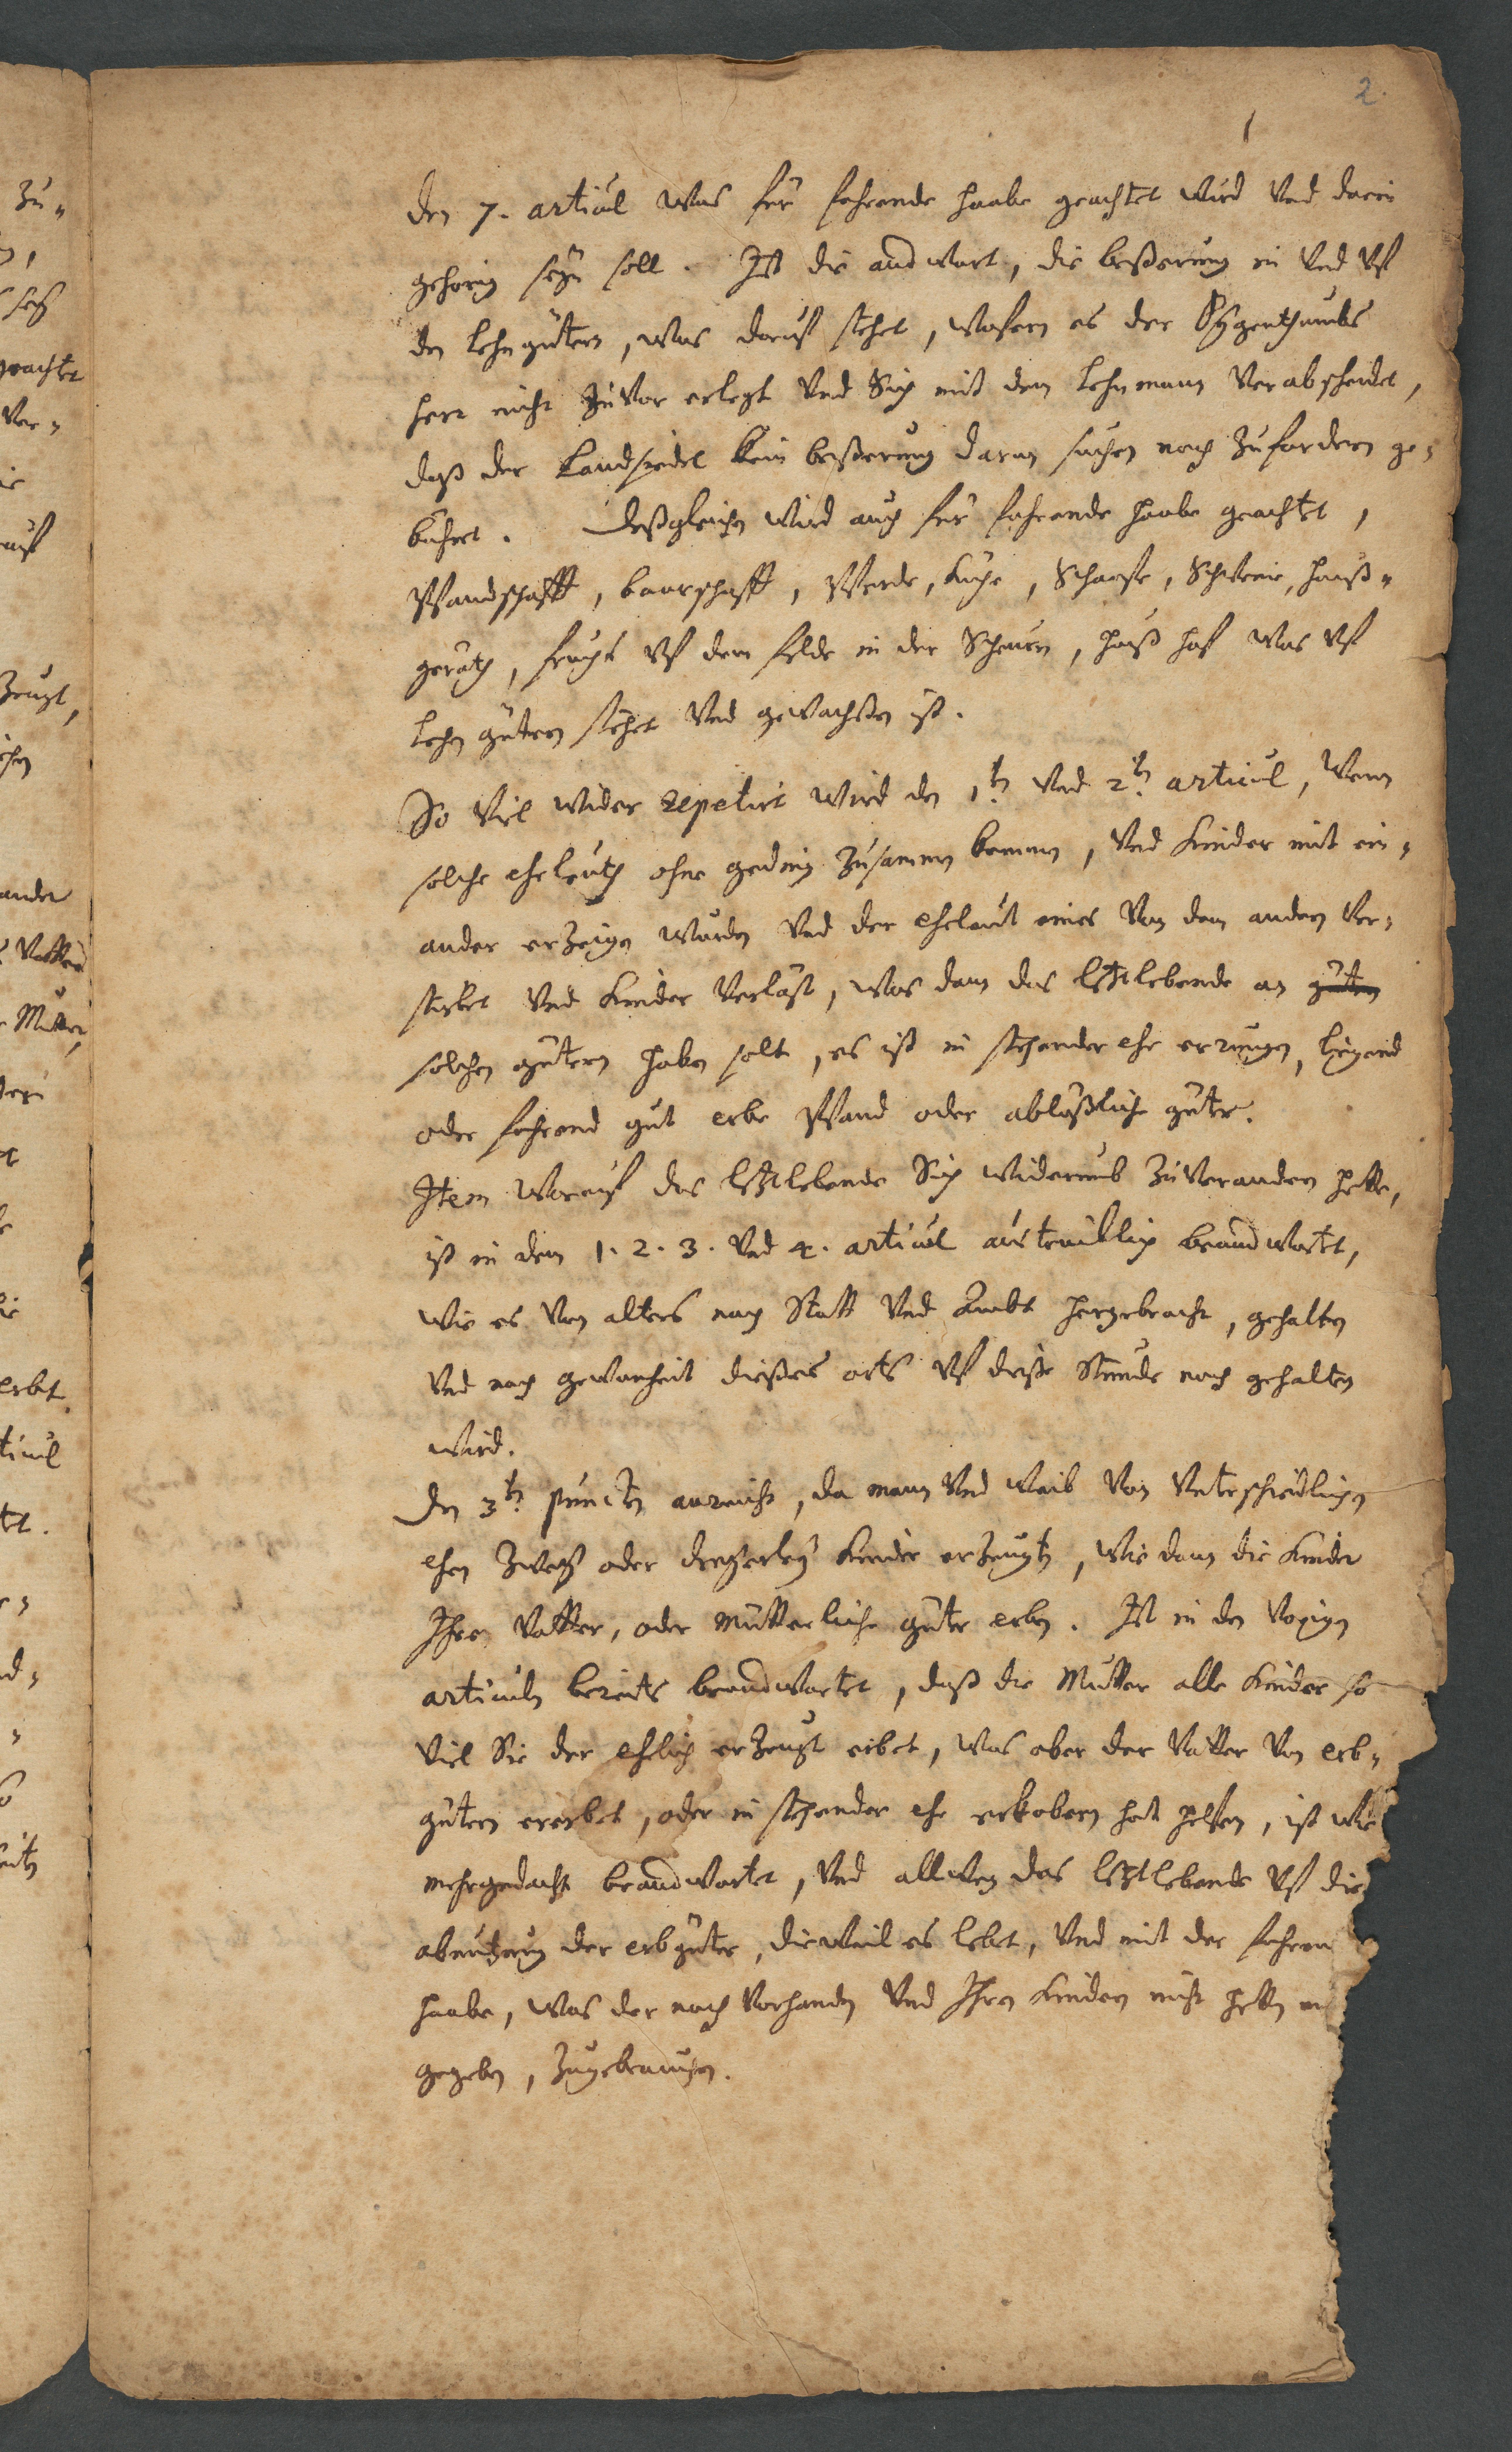 2.
den 7. articul was für fahrende haabe geachtet wird vnd darin
gehorig seyn soll. Ist die andwort, die beßerung in vnd vf
den lehngütern, was daruf stehet, wofern es der Eÿgenthumbs
herr nicht zuvor erlegt vnd Sich mit dem lehnmann verabscheidet,
daß der Landsiedel kein beßerung daran suchen noch zufordern ge-
bühret. Deßgleichen wird auch für fahrende haabe geachtet,
Pfandschafft, baarschafft, Pferde, Kühe, Schaafe, Schweine, hauß-
geräth, frucht vf dem felde in der Scheuern, hauß hof was vf
lehn gütern stehet vnd gewachsen ist.
So viel wider repetirt wird den 1tn vnd 2tn articul, wenn
solche eheleuth ohne geding zusamen kommen, vnd Kinder mit ein-
ander erzeigen würden vnd der eheleut eines von dem andern ver-
stirbet vnd Kinder verläst, was dann das letztlebende an guten
solchen gütern haben solt, es ist in stehender ehe errungen, ligend
oder fahrend gut erbe Pfand oder ablößliche güter.
Item worauf das letztlebende Sich widerumb zuverandern hette,
ist in dem 1. 2. 3. vnd 4. articul austruklich beandwortet,
wie es von alters nach Statt vnd Ambt hergebracht, gehalten
vnd nach gewonheit dießes orts vf dieße Stunde noch gehalten
wird.
Den 3tn puncten anreicht, da mann vnd weib von vnterschiedlichen
ehen zweyer oder dreyerley Kinder erzeugten, wie dann die Kinder
Ihre vatter, oder mütterliche güter erben. Ist in den vorigen
articuln bereits beandwortet, daß die Mutter alle Kinder so
viel Sie der ehelich erzeugt erbet, was aber der vatter von erb-
gütern ererbet, oder in stehender ehe erkobern hat helfen, ist wie
mehrgedacht beandwortet, vnd allweg das letztlebende vf die
abnutzung der erbgüter, dieweil es lebet, vnd mit der fahren
haabe, was der noch vorhanden vnd Ihren Kindern nicht hetten
gegeben, zugebrauchen.